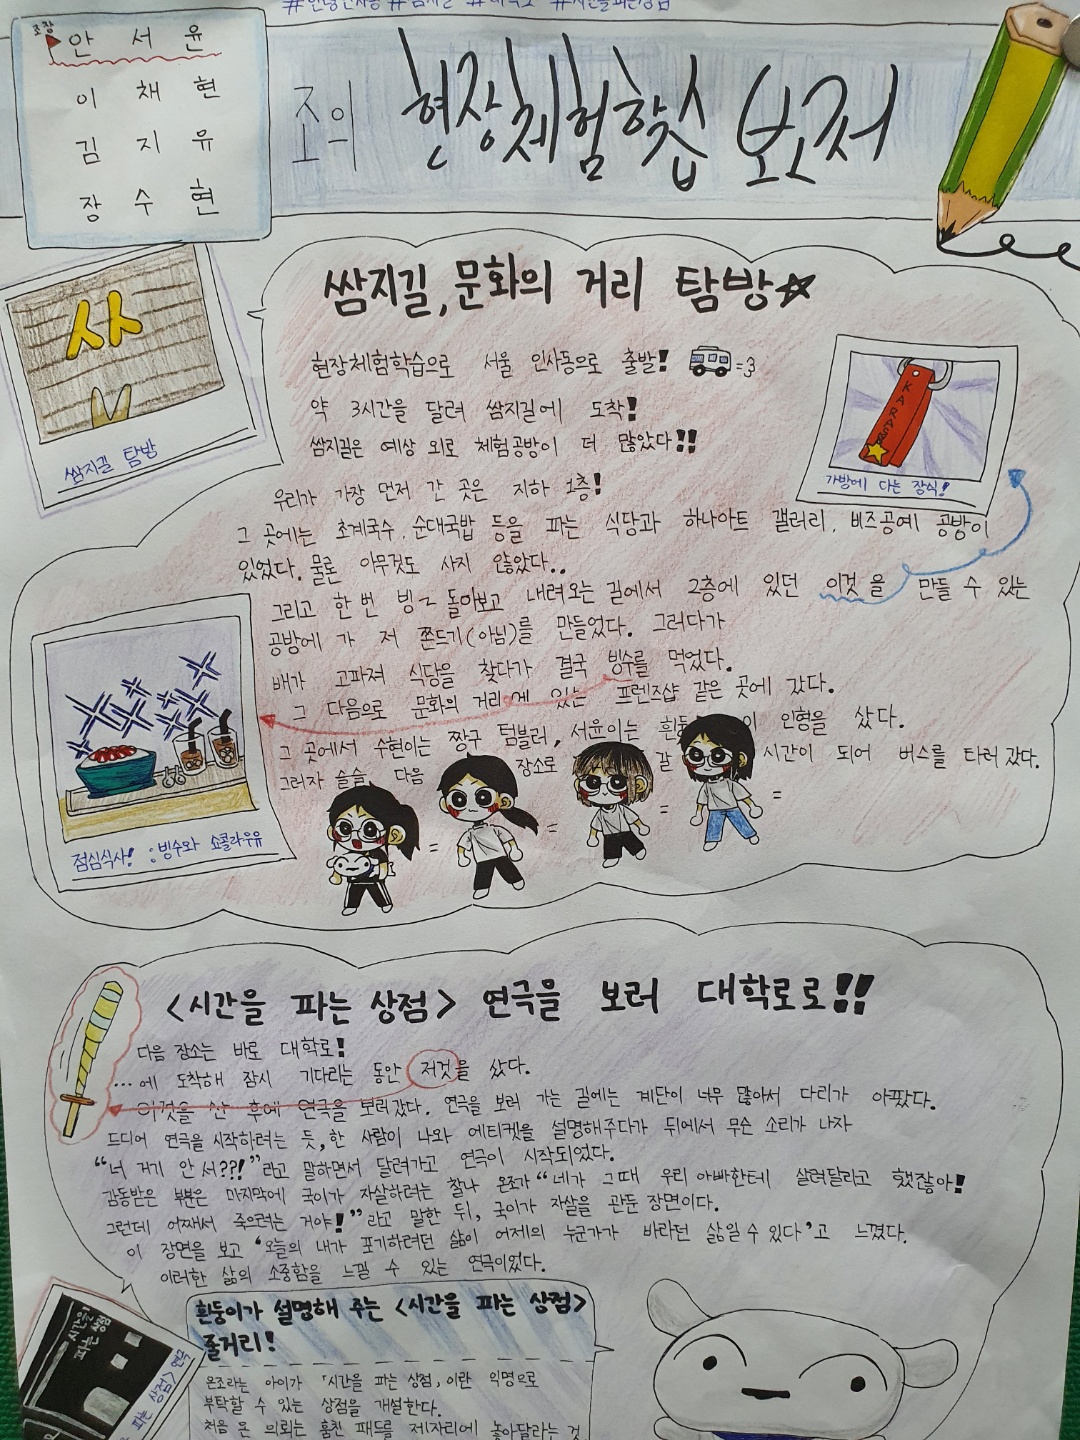 조장
안서윤
이채현
김지유
장수현
조의 현장체험학습 보고서
쌈지길, 문화의 거리 탐방
현장체험학습으로 서울 인사동으로 출발!
약 3시간을 달려 쌈지길에 도착!
쌈지길은 예상 외로 체험공방이 더 많았다!!
우리가 가장 먼저 간 곳은 지하 1층!
그 곳에는 초계국수, 순대국밥 등을 파는 식당과 하나아트 갤러리, 비즈공예 공방이
있었다. 물론 아무것도 사지 않았다..
그리고 한 번 빙~ 돌아보고 내려오는 길에서 2층에 있던 이것을 만들 수 있는
공방에 가 저 쫀드기(아님)를 만들었다. 그러다가
배가 고파져 식당을 찾다가 결국 빙수를 먹었다.
그 다음으로 문화의 거리에 있는 프렌즈샵 같은 곳에 갔다.
그 곳에서 수현이는 짱구 텀블러, 서윤이는 인형을 샀다.
그러자 슬슬 다음 장소로 갈 시간이 되어 버스를 타러 갔다.
사
쌈지길 탐방
KARASU
가방에 다는 장식!
점심식사! : 빙수와 쇼콜라우유
<시간을 파는 상점> 연극을 보러 대학로로!!
다음 장소는 바로 대학로!
...에 도착해 잠시 기다리는 동안 저것을 샀다.
이것을 산 후에 연극을 보러갔다. 연극을 보러 가는 길에는 계단이 너무 많아서 다리가 아팠다.
드디어 연극을 시작하려는 듯, 한 사람이 나와 에티켓을 설명해주다가 뒤에서 무슨 소리가 나자
"너 거기 안 서??!"라고 말하면서 달려가고 연극이 시작되었다.
감동받은 부분은 마지막에 국이가 자살하려는 찰나 온조가 "네가 그때 우리 아빠한테 살려달라고 했잖아!
그런데 어째서 죽으려는 거야!"라고 말한 뒤, 국이가 자살을 관둔 장면이다.
이 장면을 보고 '오늘의 내가 포기하려던 삶이 어제의 누군가가 바라던 삶일 수 있다'고 느꼈다.
이러한 삶의 소중함을 느낄 수 있는 연극이었다.
시간을 파는 상점
파는 상점> 연극
흰둥이가 설명해 주는 <시간을 파는 상점>
줄거리!
온조라는 아이가 「시간을 파는 상점」이란 익명으로
부탁할 수 있는 상점을 개설한다.
처음 온 의뢰는 훔친 패드를 제자리에 놓아달라는 것